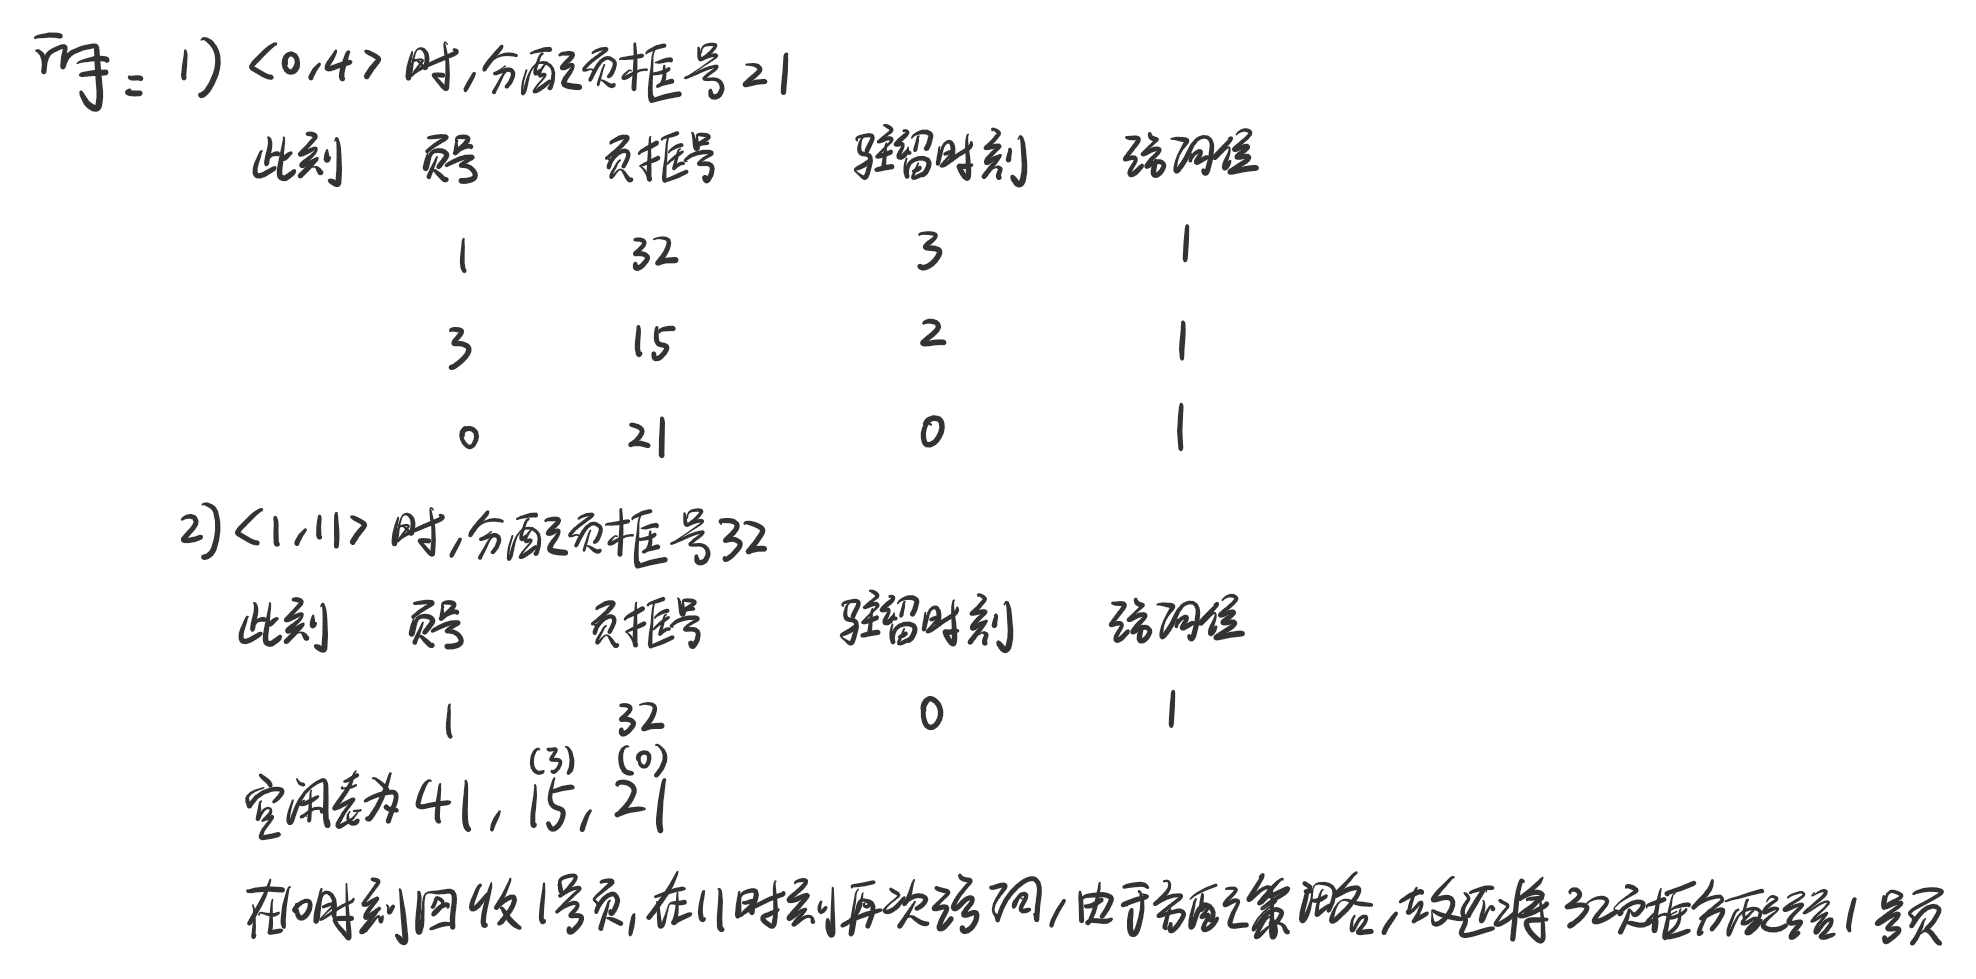 解: 1) <0,4> 时,分配页框号21
此刻 页号 页框号 驻留时刻 访问位
1 32 3 1
3 15 2 1
0 21 0 1
2) <1,11> 时,分配页框号32
此刻 页号 页框号 驻留时刻 访问位
1 32 0 1
(3) (0)
空闲表为 41, 15, 21
在10时刻回收1号页,在11时刻再次访问,由于分配策略,故还将32页框分配给1号页